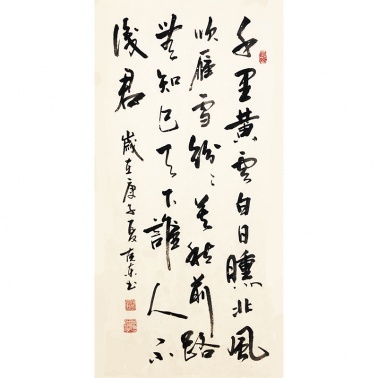 千里黄雲白日曛北風
吹雁雪紛々莫愁前路
無知己天下誰人不
識君
歲在庚子夏東书